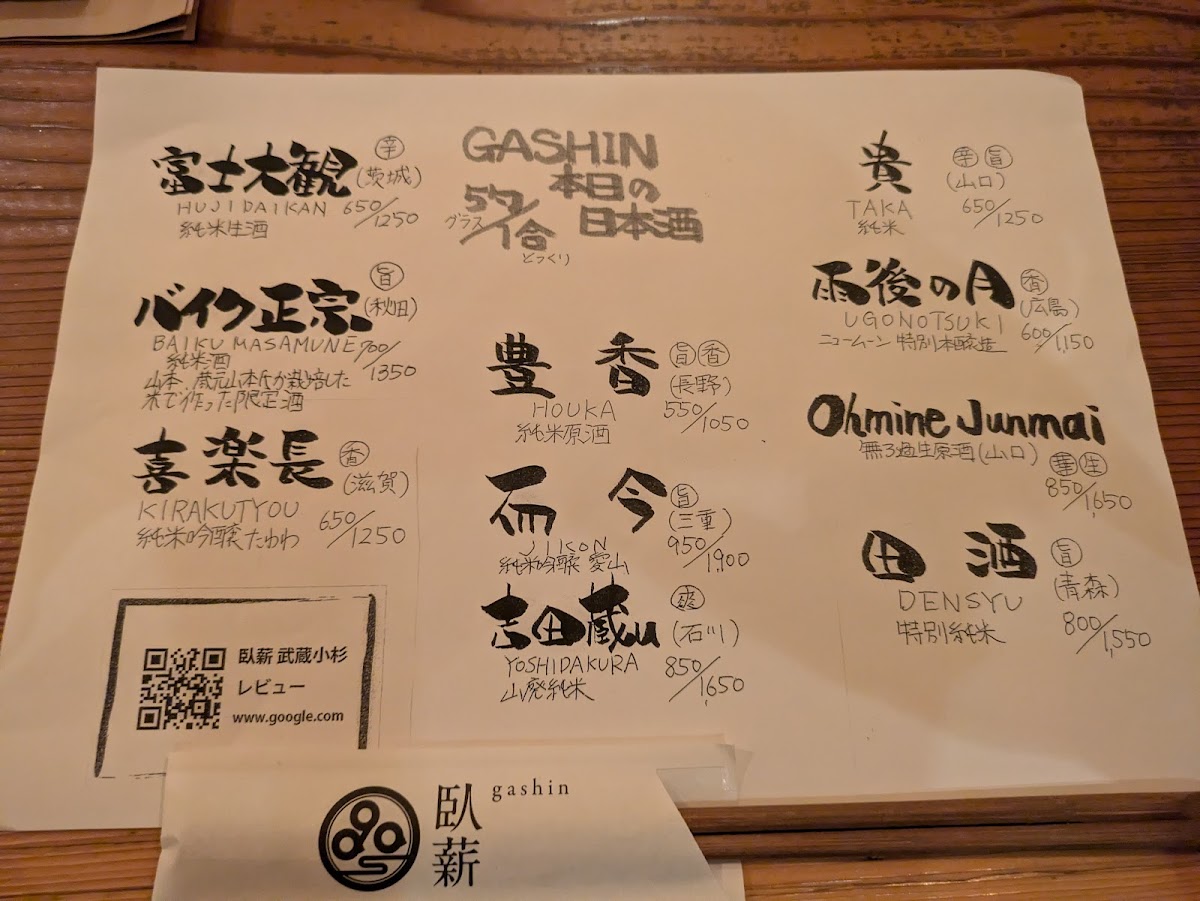 富士大観 辛
(茨城)
HUJIDAIKAN 650/1250
純米生酒
バイク正宗 旨
(秋田)
BAIKU MASAMUNE 700/1350
純米酒
山本.蔵元山本氏が栽培した
米で作った限定酒
喜楽長 香
(滋賀)
KIRAKUTYOU 650/1250
純米吟醸 たわわ
臥薪 武蔵小杉
レビュー
www.google.com
GASHIN
本日の
日本酒
グラス/1合
とっくり
豊香 旨 香
(長野)
HOUKA 550/1050
純米原酒
而今 旨
(三重)
JIKON 950/1,900
純米吟醸 愛山
吉田蔵u 爽
(石川)
YOSHIDAKURA 850/1,650
山廃純米
貴 辛 旨
(山口)
TAKA 650/1250
純米
雨後の月 香
(広島)
UGONOTSUKI 600/1,150
ニュームーン 特別本醸造
Ohmine Junmai
無ろ過生原酒(山口) 華 生
850/1,650
田酒 旨
(青森)
DENSYU 800/1,550
特別純米
臥薪 gashin